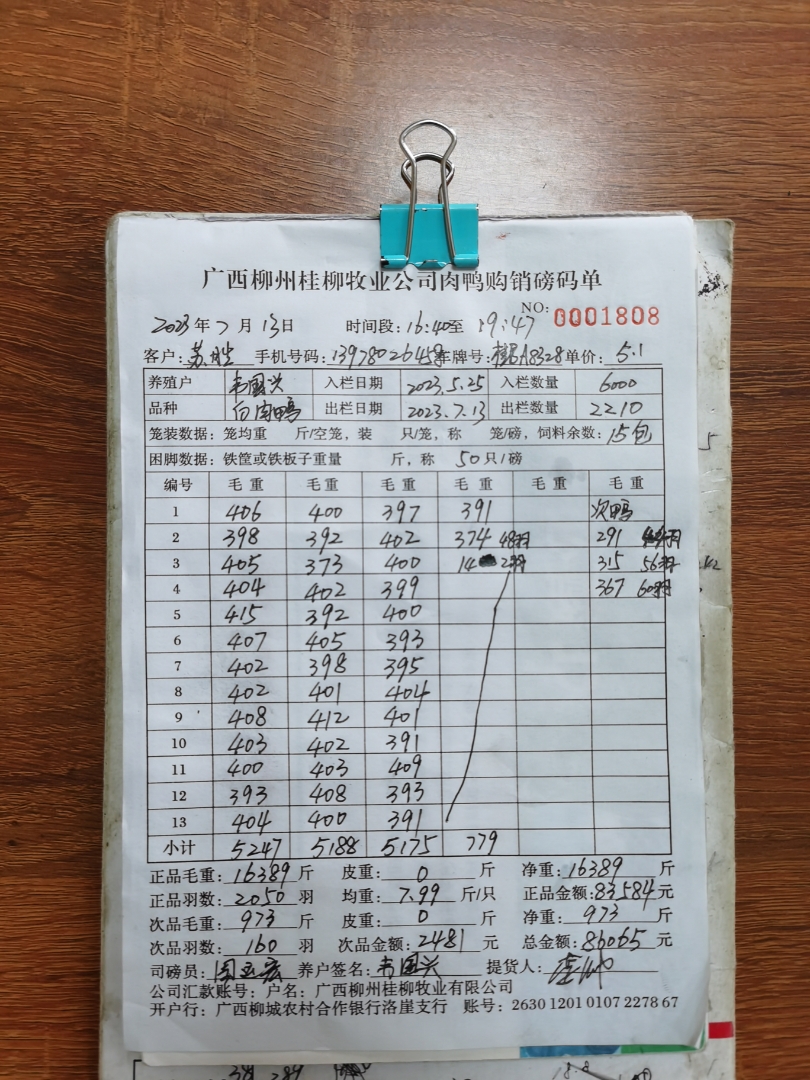 广西柳州桂柳牧业公司肉鸭购销磅码单
NO: 0001808
2023年7月13日 时间段: 16:40至 19:47
客户: 手机号码: 车牌号: 单价: 5.1
养殖户 韦国兴 入栏日期 2023.5.25 入栏数量 6000
品种 白肉鸭 出栏日期 2023.7.13 出栏数量 2210
笼装数据: 笼均重 斤/空笼, 装 只/笼, 称 笼/磅, 饲料余数: 15包
困脚数据: 铁筐或铁板子重量 斤, 称 50只/磅
编号 毛重 毛重 毛重 毛重 毛重 毛重
1 406 400 397 391 次鸭
2 398 392 402 374 48羽 291
3 405 373 400 14 2羽 315 56羽
4 404 402 399 367 60羽
5 415 392 400
6 407 405 393
7 402 398 395
8 402 401 404
9 408 412 401
10 403 402 391
11 400 403 409
12 393 408 393
13 404 400 391
小计 5247 5188 5175 779
正品毛重: 16389 斤 皮重: 0 斤 净重: 16389 斤
正品羽数: 2050 羽 均重: 7.99 斤/只 正品金额: 83584 元
次品毛重: 973 斤 皮重: 0 斤 净重: 973 斤
次品羽数: 160 羽 次品金额: 2481 元 总金额: 86065 元
司磅员: 养户签名: 韦国兴 提货人:
公司汇款账号: 户名: 广西柳州桂柳牧业有限公司
开户行: 广西柳城农村合作银行洛崖支行 账号: 2630 1201 0107 2278 67